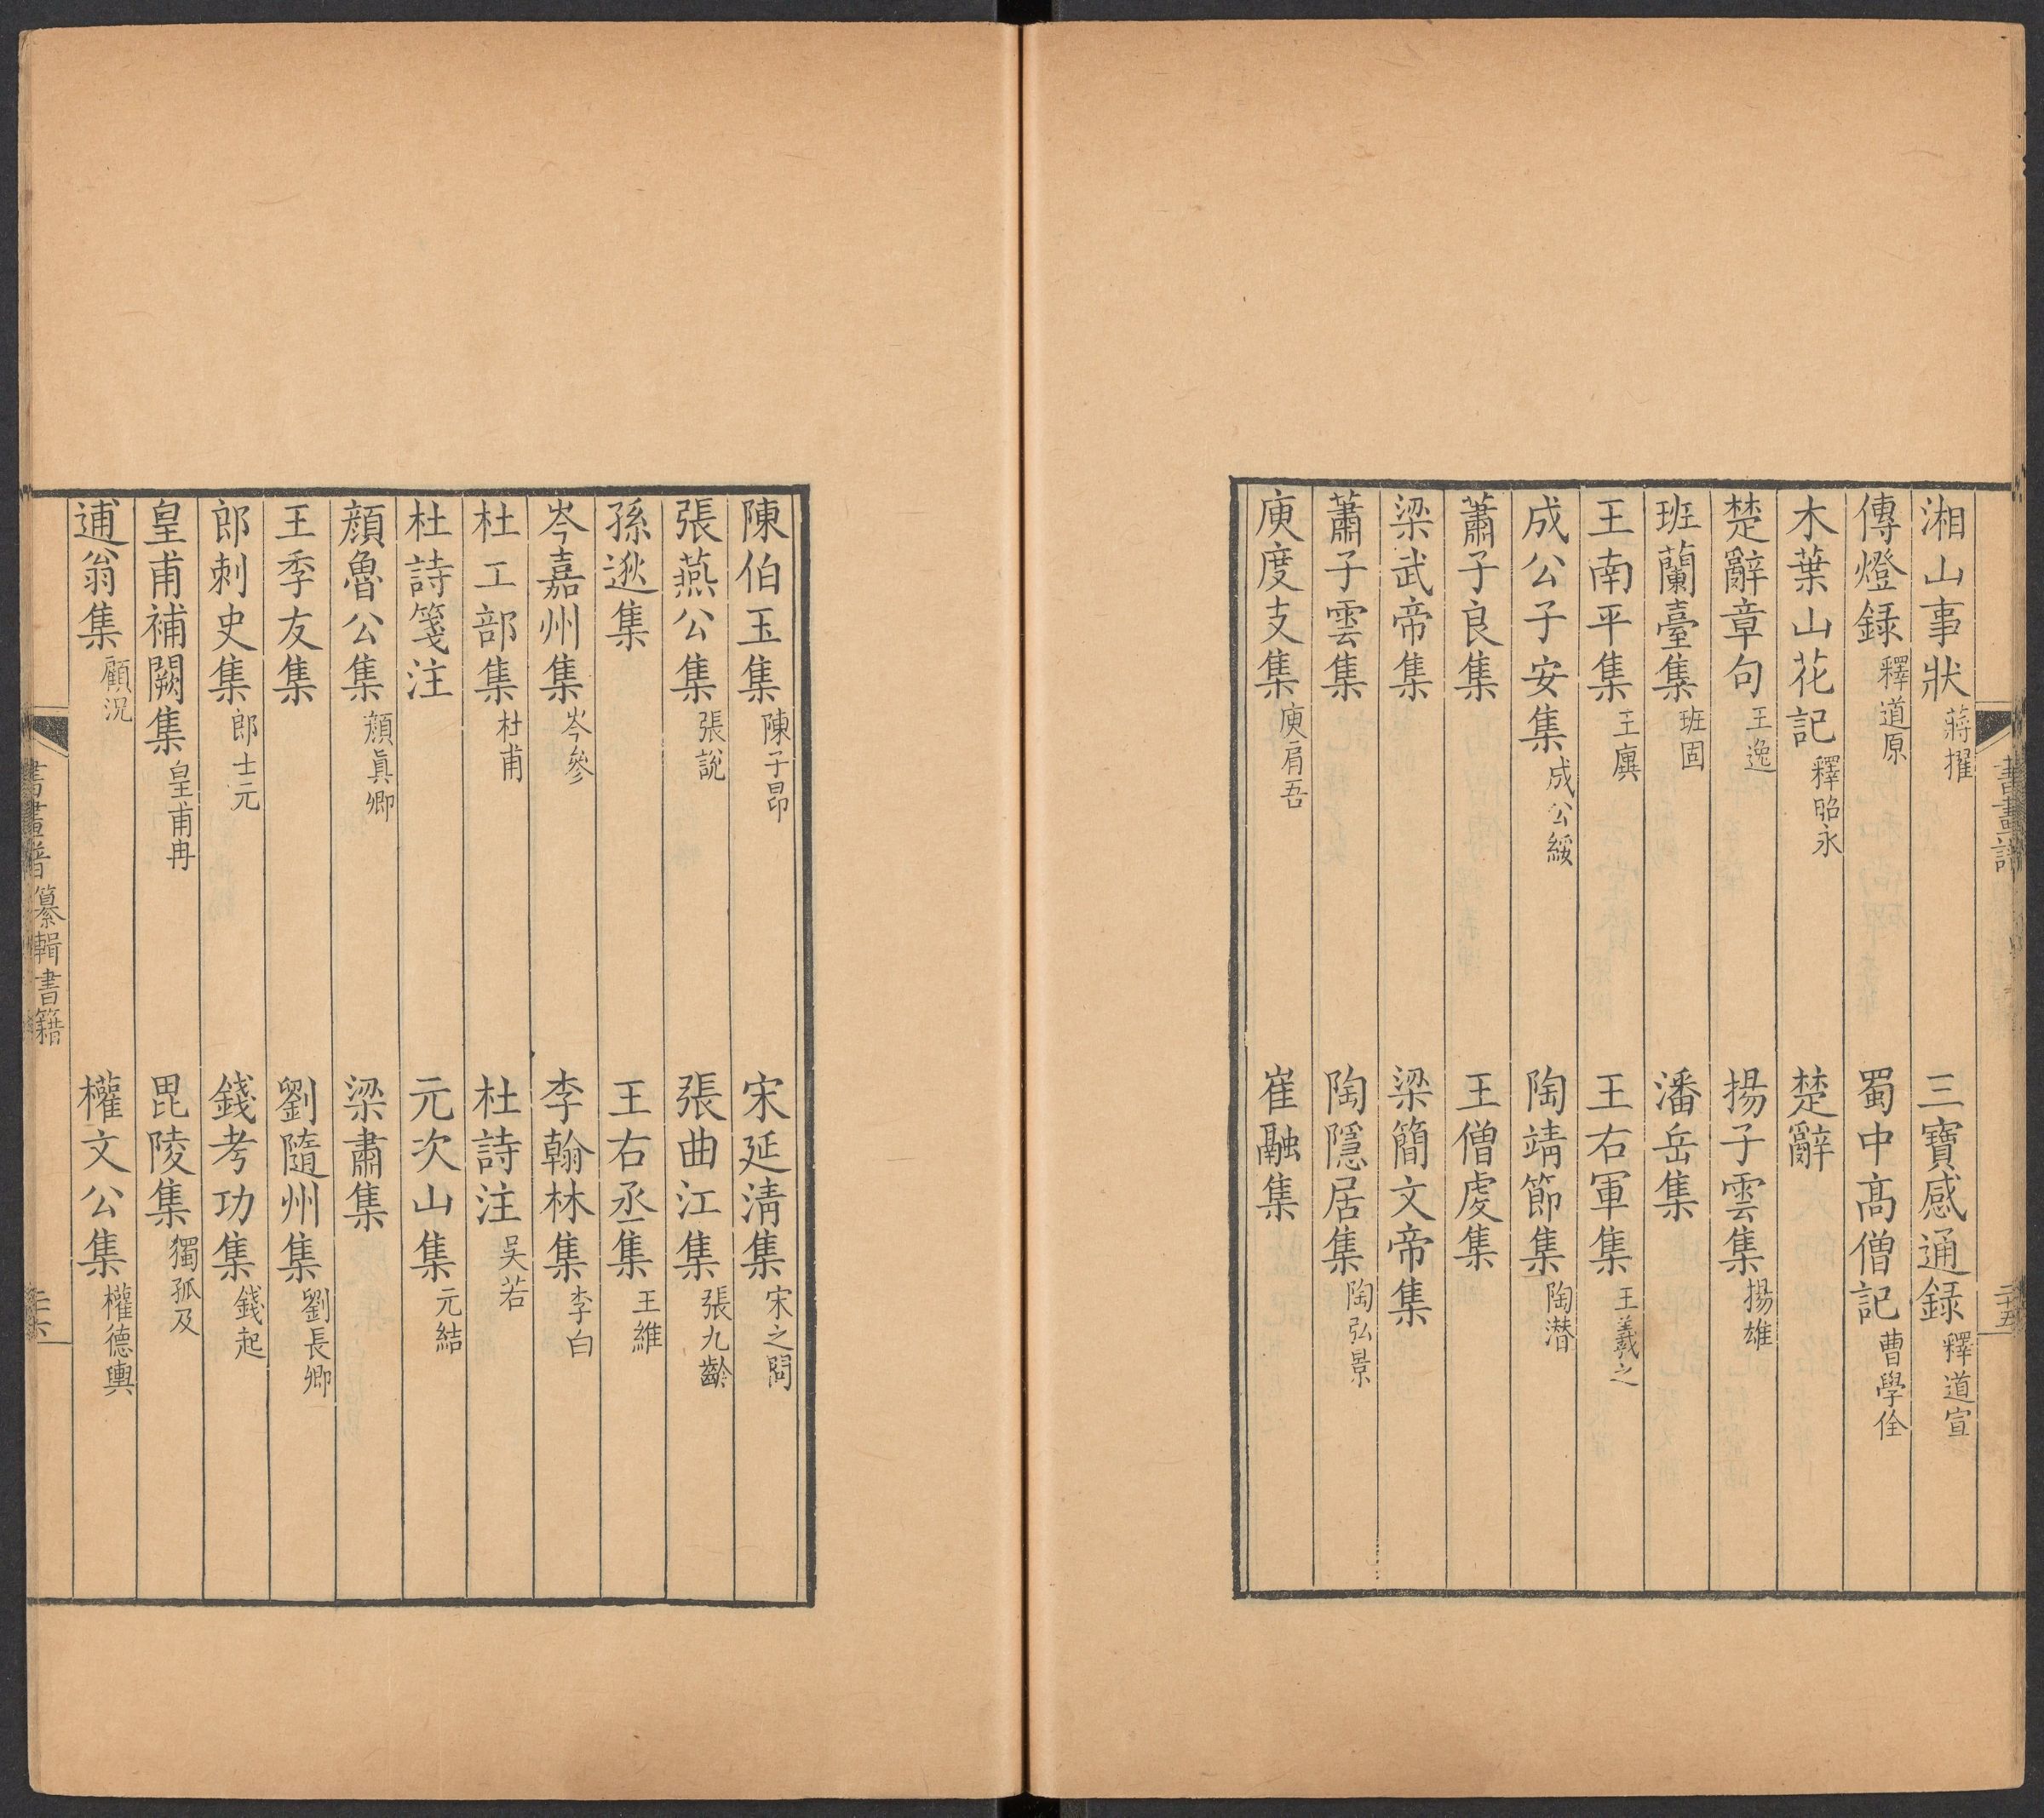 湘山事狀 蔣擢 三寶感通録 釋道宣
傳燈録 釋道原 蜀中高僧記 曹學佺
木葉山花記 釋昭永 楚辭
楚辭章句 王逸 揚子雲集 揚雄
班蘭臺集 班固 潘岳集
王南平集 王廙 王右軍集 王羲之
成公子安集 成公綏 陶靖節集 陶潛
蕭子良集 王僧虔集
梁武帝集 梁簡文帝集
蕭子雲集 陶隱居集 陶弘景
庾度支集 庾肩吾 崔融集
書畫譜 二十五
陳伯玉集 陳子昂 宋延清集 宋之問
張燕公集 張說 張曲江集 張九齡
孫逖集 王右丞集 王維
岑嘉州集 岑參 李翰林集 李白
杜工部集 杜甫 杜詩注 吴若
杜詩箋注 元次山集 元結
顔魯公集 顔眞卿 梁肅集
王季友集 劉隨州集 劉長卿
郎刺史集 郎士元 錢考功集 錢起
皇甫補闕集 皇甫冉 毘陵集 獨孤及
逋翁集 顧況 權文公集 權德輿
書畫譜 纂輯書籍 二十六